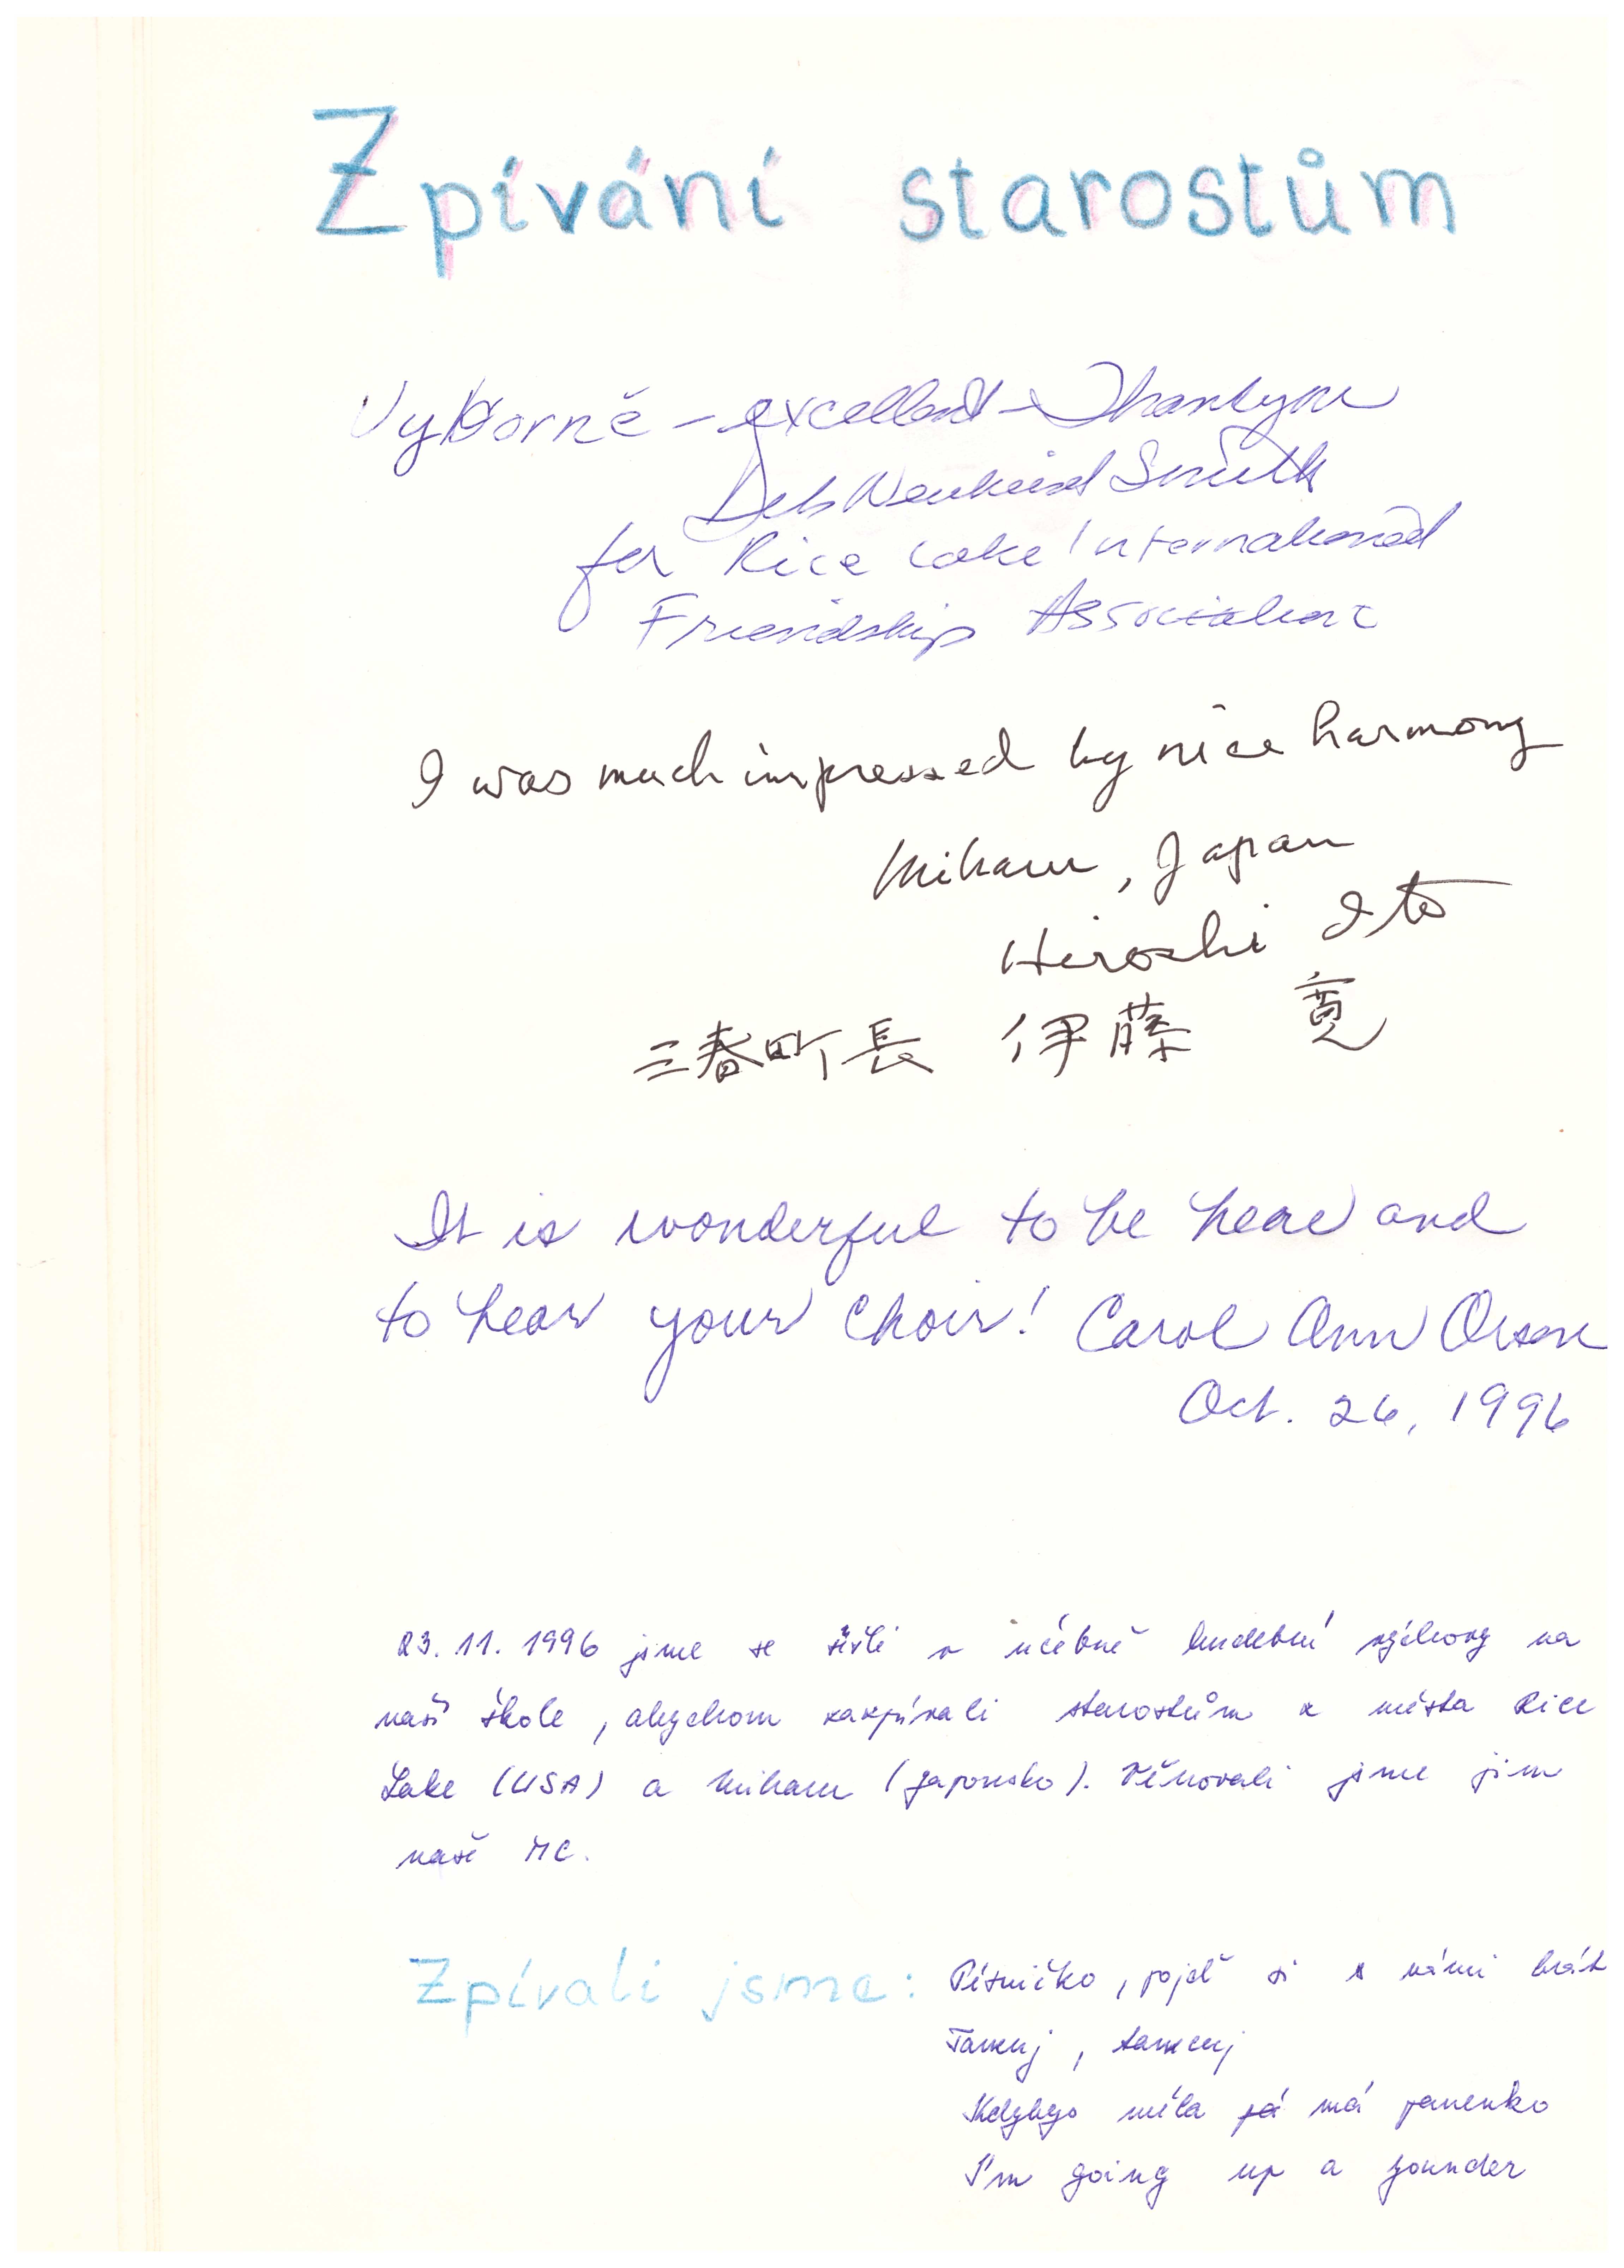 Zpívání starostům
Výborně - excellent - Thank you
Deb Smith
for Rice Lake International
Friendship Association
I was much impressed by nice harmony
Miharu, Japan
Hiroshi Ito
三春町長 伊藤 寛
It is wonderful to be here and
to hear your choir! Carol Ann Olson
Oct. 26, 1996
23. 11. 1996 jsme se sešli v učebně hudební výchovy na
naší škole, abychom zazpívali starostům z města Rice
Lake (USA) a Miharu (Japonsko). Věnovali jsme jim
naše MC.
Zpívali jsme: Písničko, pojď si s námi hrát
Tancuj, tancuj
Kdybys měla já má panenko
I'm going up a younder